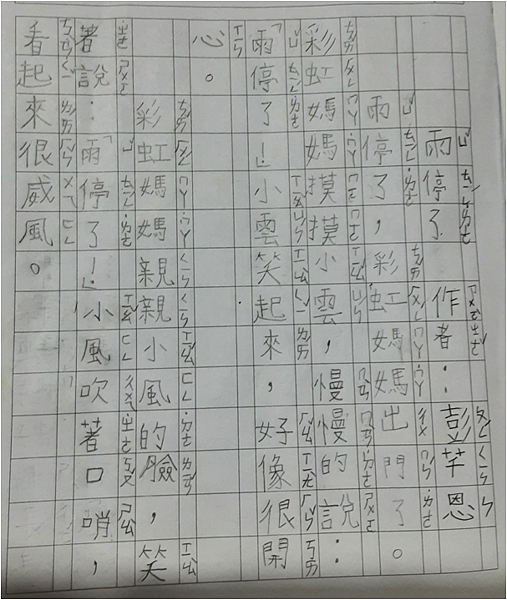 雨停了 作者：彭芊恩
雨停了，彩虹媽媽出門了。
彩虹媽媽摸摸小雲，慢慢的說：
「雨停了！」小雲笑起來，好像很開
心。
彩虹媽媽親親小風的臉，笑
著說：「雨停了！」小風吹著口哨，
看起來很威風。